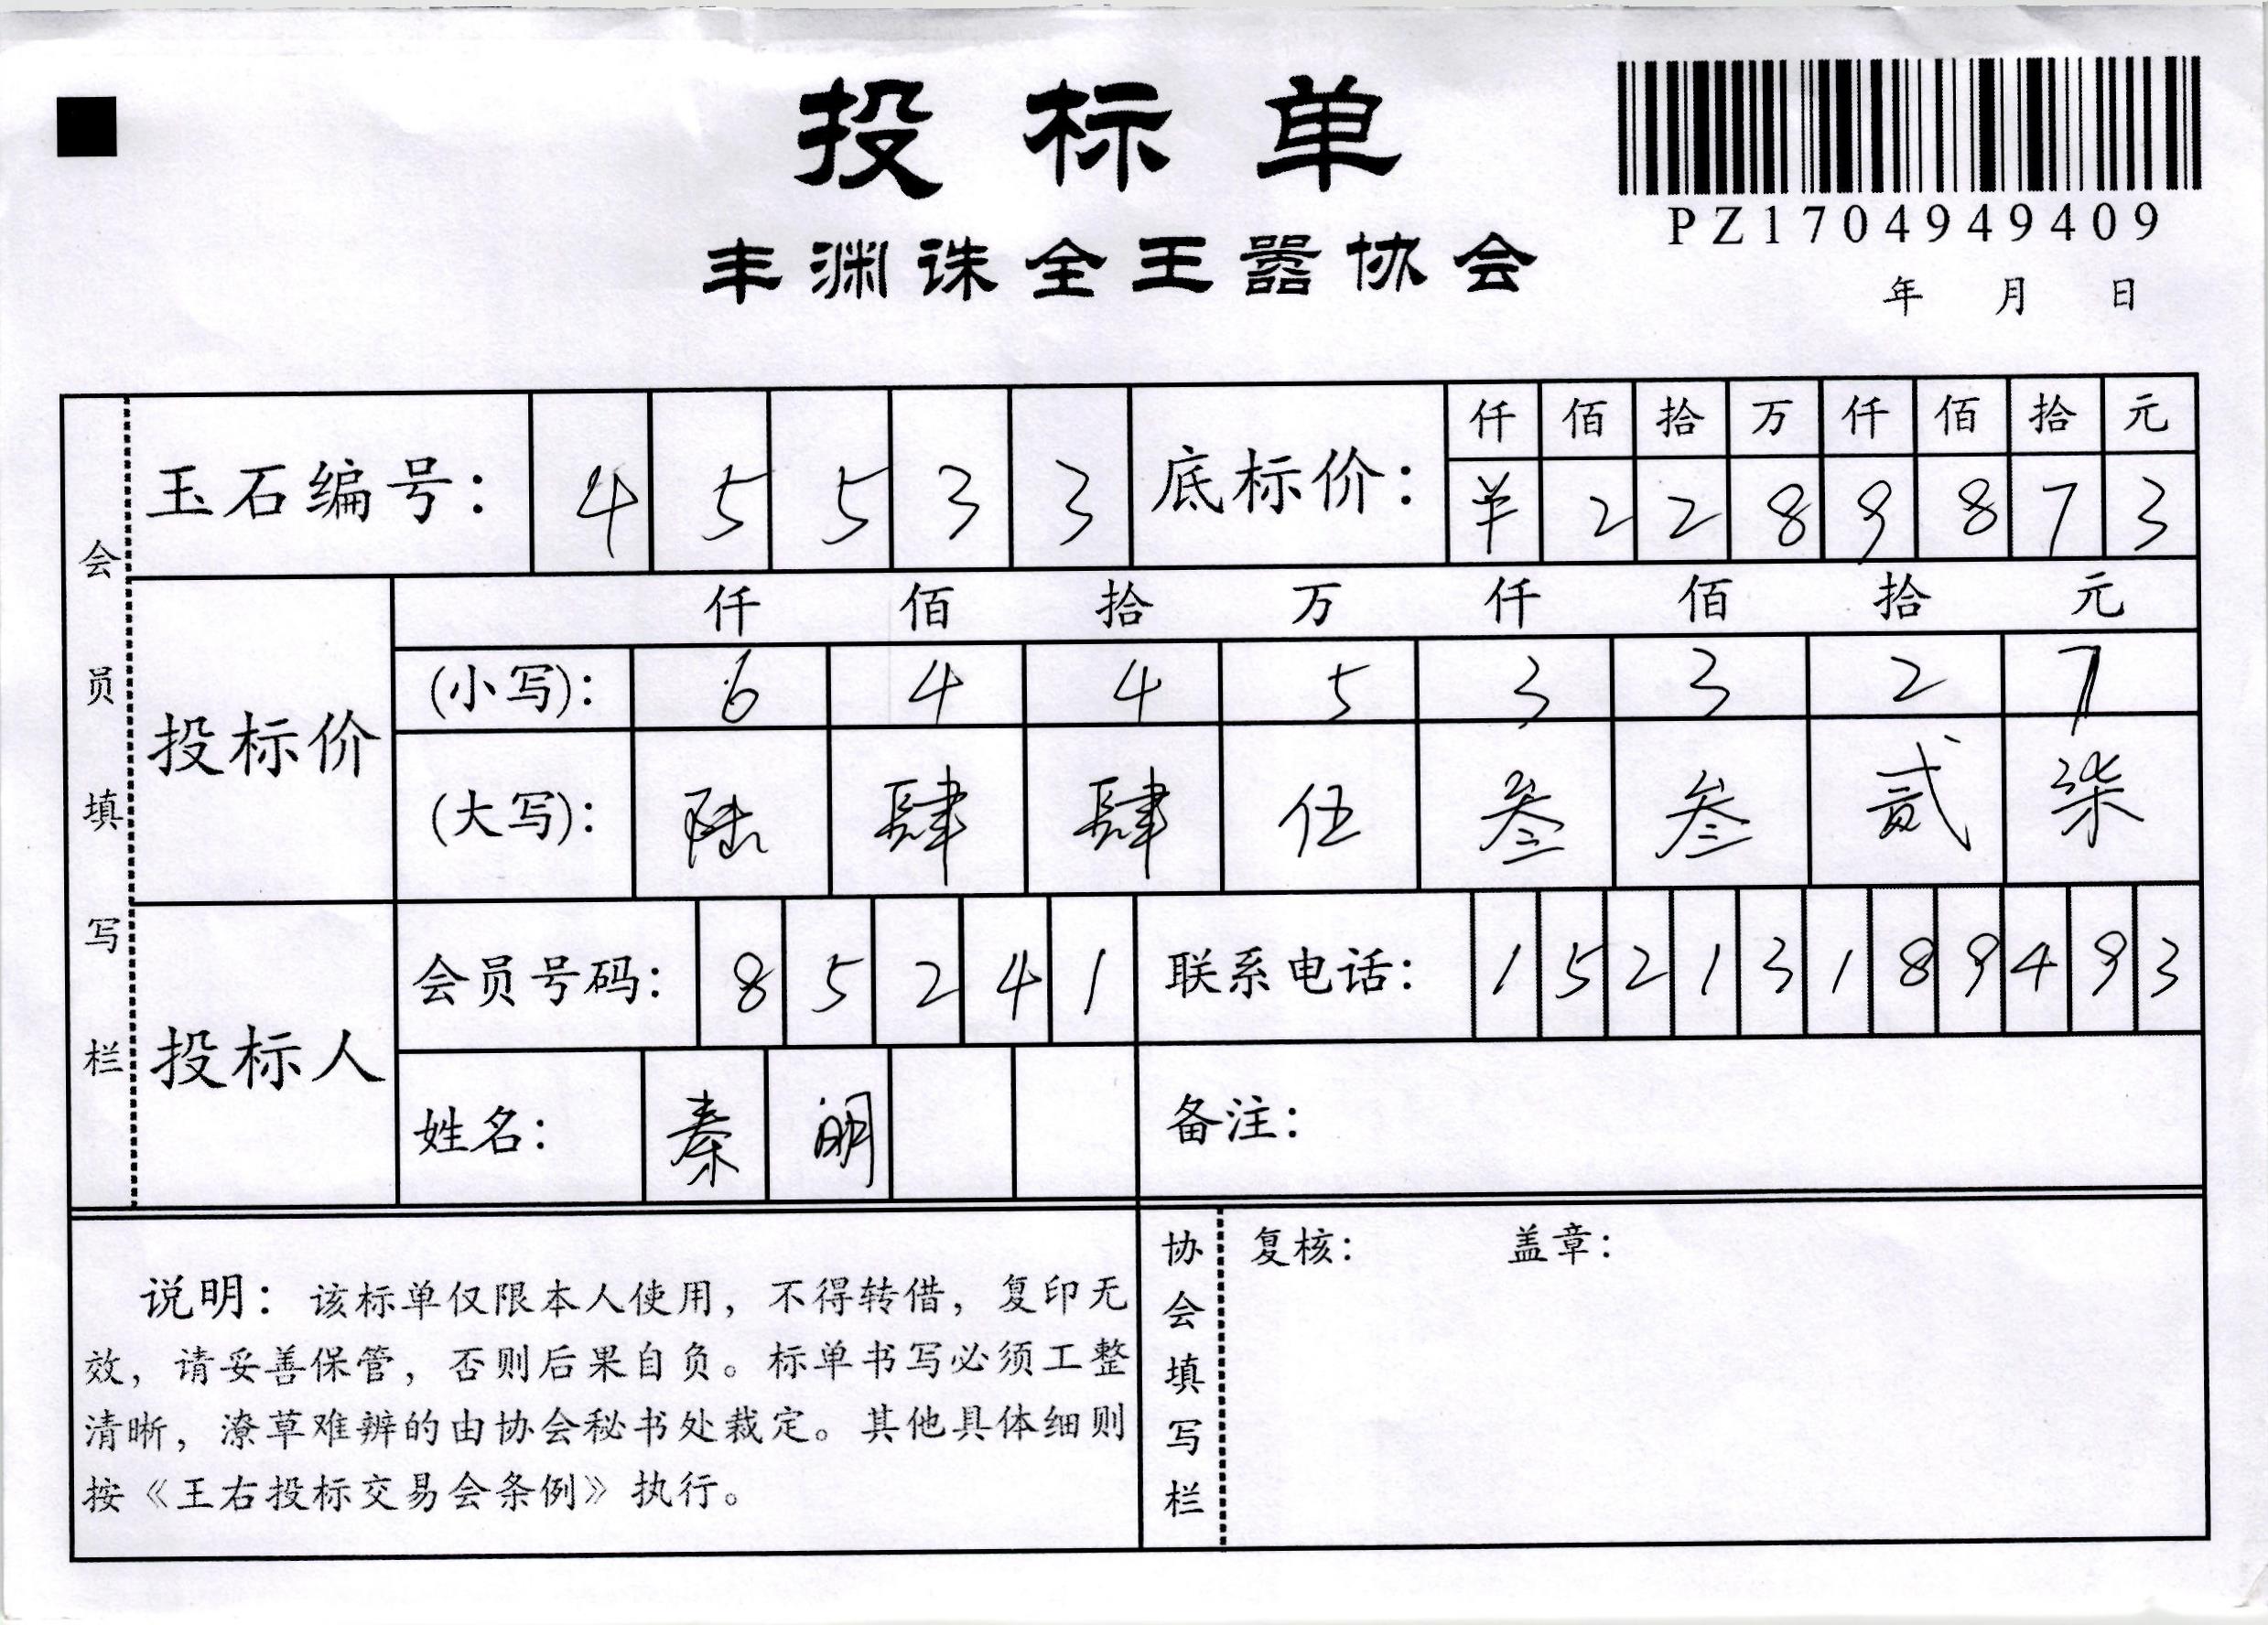 投标单
PZ1704949409
丰渊诛全王嚣协会
年 月 日
会员填写栏
玉石编号： 4 5 5 3 3
底标价： 仟 佰 拾 万 仟 佰 拾 元
¥ 2 2 8 9 8 7 3
投标价
仟 佰 拾 万 仟 佰 拾 元
(小写)： 6 4 4 5 3 3 2 7
(大写)： 陆 肆 肆 伍 叁 叁 贰 柒
投标人
会员号码： 8 5 2 4 1
联系电话： 1 5 2 1 3 1 8 9 4 9 3
姓名： 秦 明
备注：
说明：该标单仅限本人使用，不得转借，复印无
效，请妥善保管，否则后果自负。标单书写必须工整
清晰，潦草难辨的由协会秘书处裁定。其他具体细则
按《王右投标交易会条例》执行。
协会填写栏
复核： 盖章：